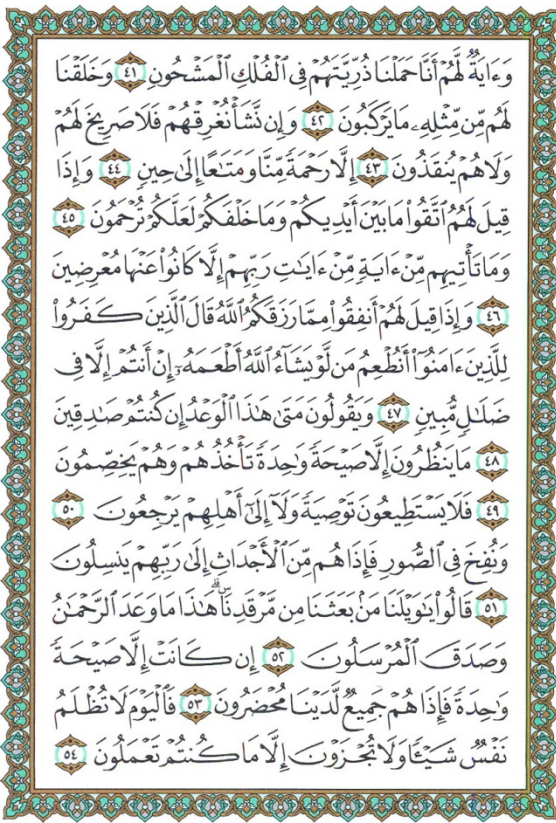 وَءَايَةٌ لَّهُمْ أَنَّا حَمَلْنَا ذُرِّيَّتَهُمْ فِى الْفُلْكِ الْمَشْحُونِ ٤١ وَخَلَقْنَا
لَهُم مِّن مِّثْلِهِۦ مَا يَرْكَبُونَ ٤٢ وَإِن نَّشَأْ نُغْرِقْهُمْ فَلَا صَرِيخَ لَهُمْ
وَلَا هُمْ يُنقَذُونَ ٤٣ إِلَّا رَحْمَةً مِّنَّا وَمَتَٰعًا إِلَىٰ حِينٍ ٤٤ وَإِذَا
قِيلَ لَهُمُ اتَّقُوا۟ مَا بَيْنَ أَيْدِيكُمْ وَمَا خَلْفَكُمْ لَعَلَّكُمْ تُرْحَمُونَ ٤٥
وَمَا تَأْتِيهِم مِّنْ ءَايَةٍ مِّنْ ءَايَٰتِ رَبِّهِمْ إِلَّا كَانُوا۟ عَنْهَا مُعْرِضِينَ
٤٦ وَإِذَا قِيلَ لَهُمْ أَنفِقُوا۟ مِمَّا رَزَقَكُمُ اللَّهُ قَالَ الَّذِينَ كَفَرُوا۟
لِلَّذِينَ ءَامَنُوٓا۟ أَنُطْعِمُ مَن لَّوْ يَشَآءُ اللَّهُ أَطْعَمَهُۥٓ إِنْ أَنتُمْ إِلَّا فِى
ضَلَٰلٍ مُّبِينٍ ٤٧ وَيَقُولُونَ مَتَىٰ هَٰذَا الْوَعْدُ إِن كُنتُمْ صَٰدِقِينَ
٤٨ مَا يَنظُرُونَ إِلَّا صَيْحَةً وَٰحِدَةً تَأْخُذُهُمْ وَهُمْ يَخِصِّمُونَ
٤٩ فَلَا يَسْتَطِيعُونَ تَوْصِيَةً وَلَآ إِلَىٰٓ أَهْلِهِمْ يَرْجِعُونَ ٥٠
وَنُفِخَ فِى الصُّورِ فَإِذَا هُم مِّنَ الْأَجْدَاثِ إِلَىٰ رَبِّهِمْ يَنسِلُونَ
٥١ قَالُوا۟ يَٰوَيْلَنَا مَنۢ بَعَثَنَا مِن مَّرْقَدِنَا ۜ ۗ هَٰذَا مَا وَعَدَ الرَّحْمَٰنُ
وَصَدَقَ الْمُرْسَلُونَ ٥٢ إِن كَانَتْ إِلَّا صَيْحَةً
وَٰحِدَةً فَإِذَا هُمْ جَمِيعٌ لَّدَيْنَا مُحْضَرُونَ ٥٣ فَالْيَوْمَ لَا تُظْلَمُ
نَفْسٌ شَيْـًٔا وَلَا تُجْزَوْنَ إِلَّا مَا كُنتُمْ تَعْمَلُونَ ٥٤